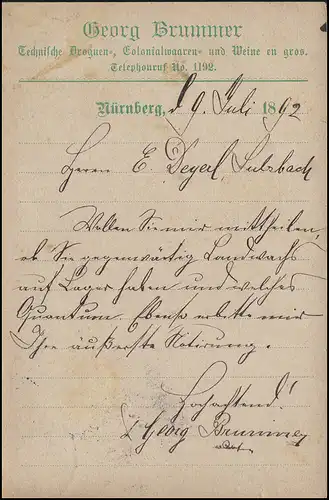 Georg Brummer
Technische Droguen-, Colonialwaaren- und Weine en gros.
Telephonruf No. 1192.
Nürnberg, d 9. Juli 1892
Herrn E. Deyerl, Sulzbach
Wollen Sie mir mittheilen,
ob Sie gegenwärtig Landwachs
auf Lager haben und welches
Quantum. Ebenso erbitte mir
Ihre äußerste Notirung.
Hochachtend!
Georg Brummer